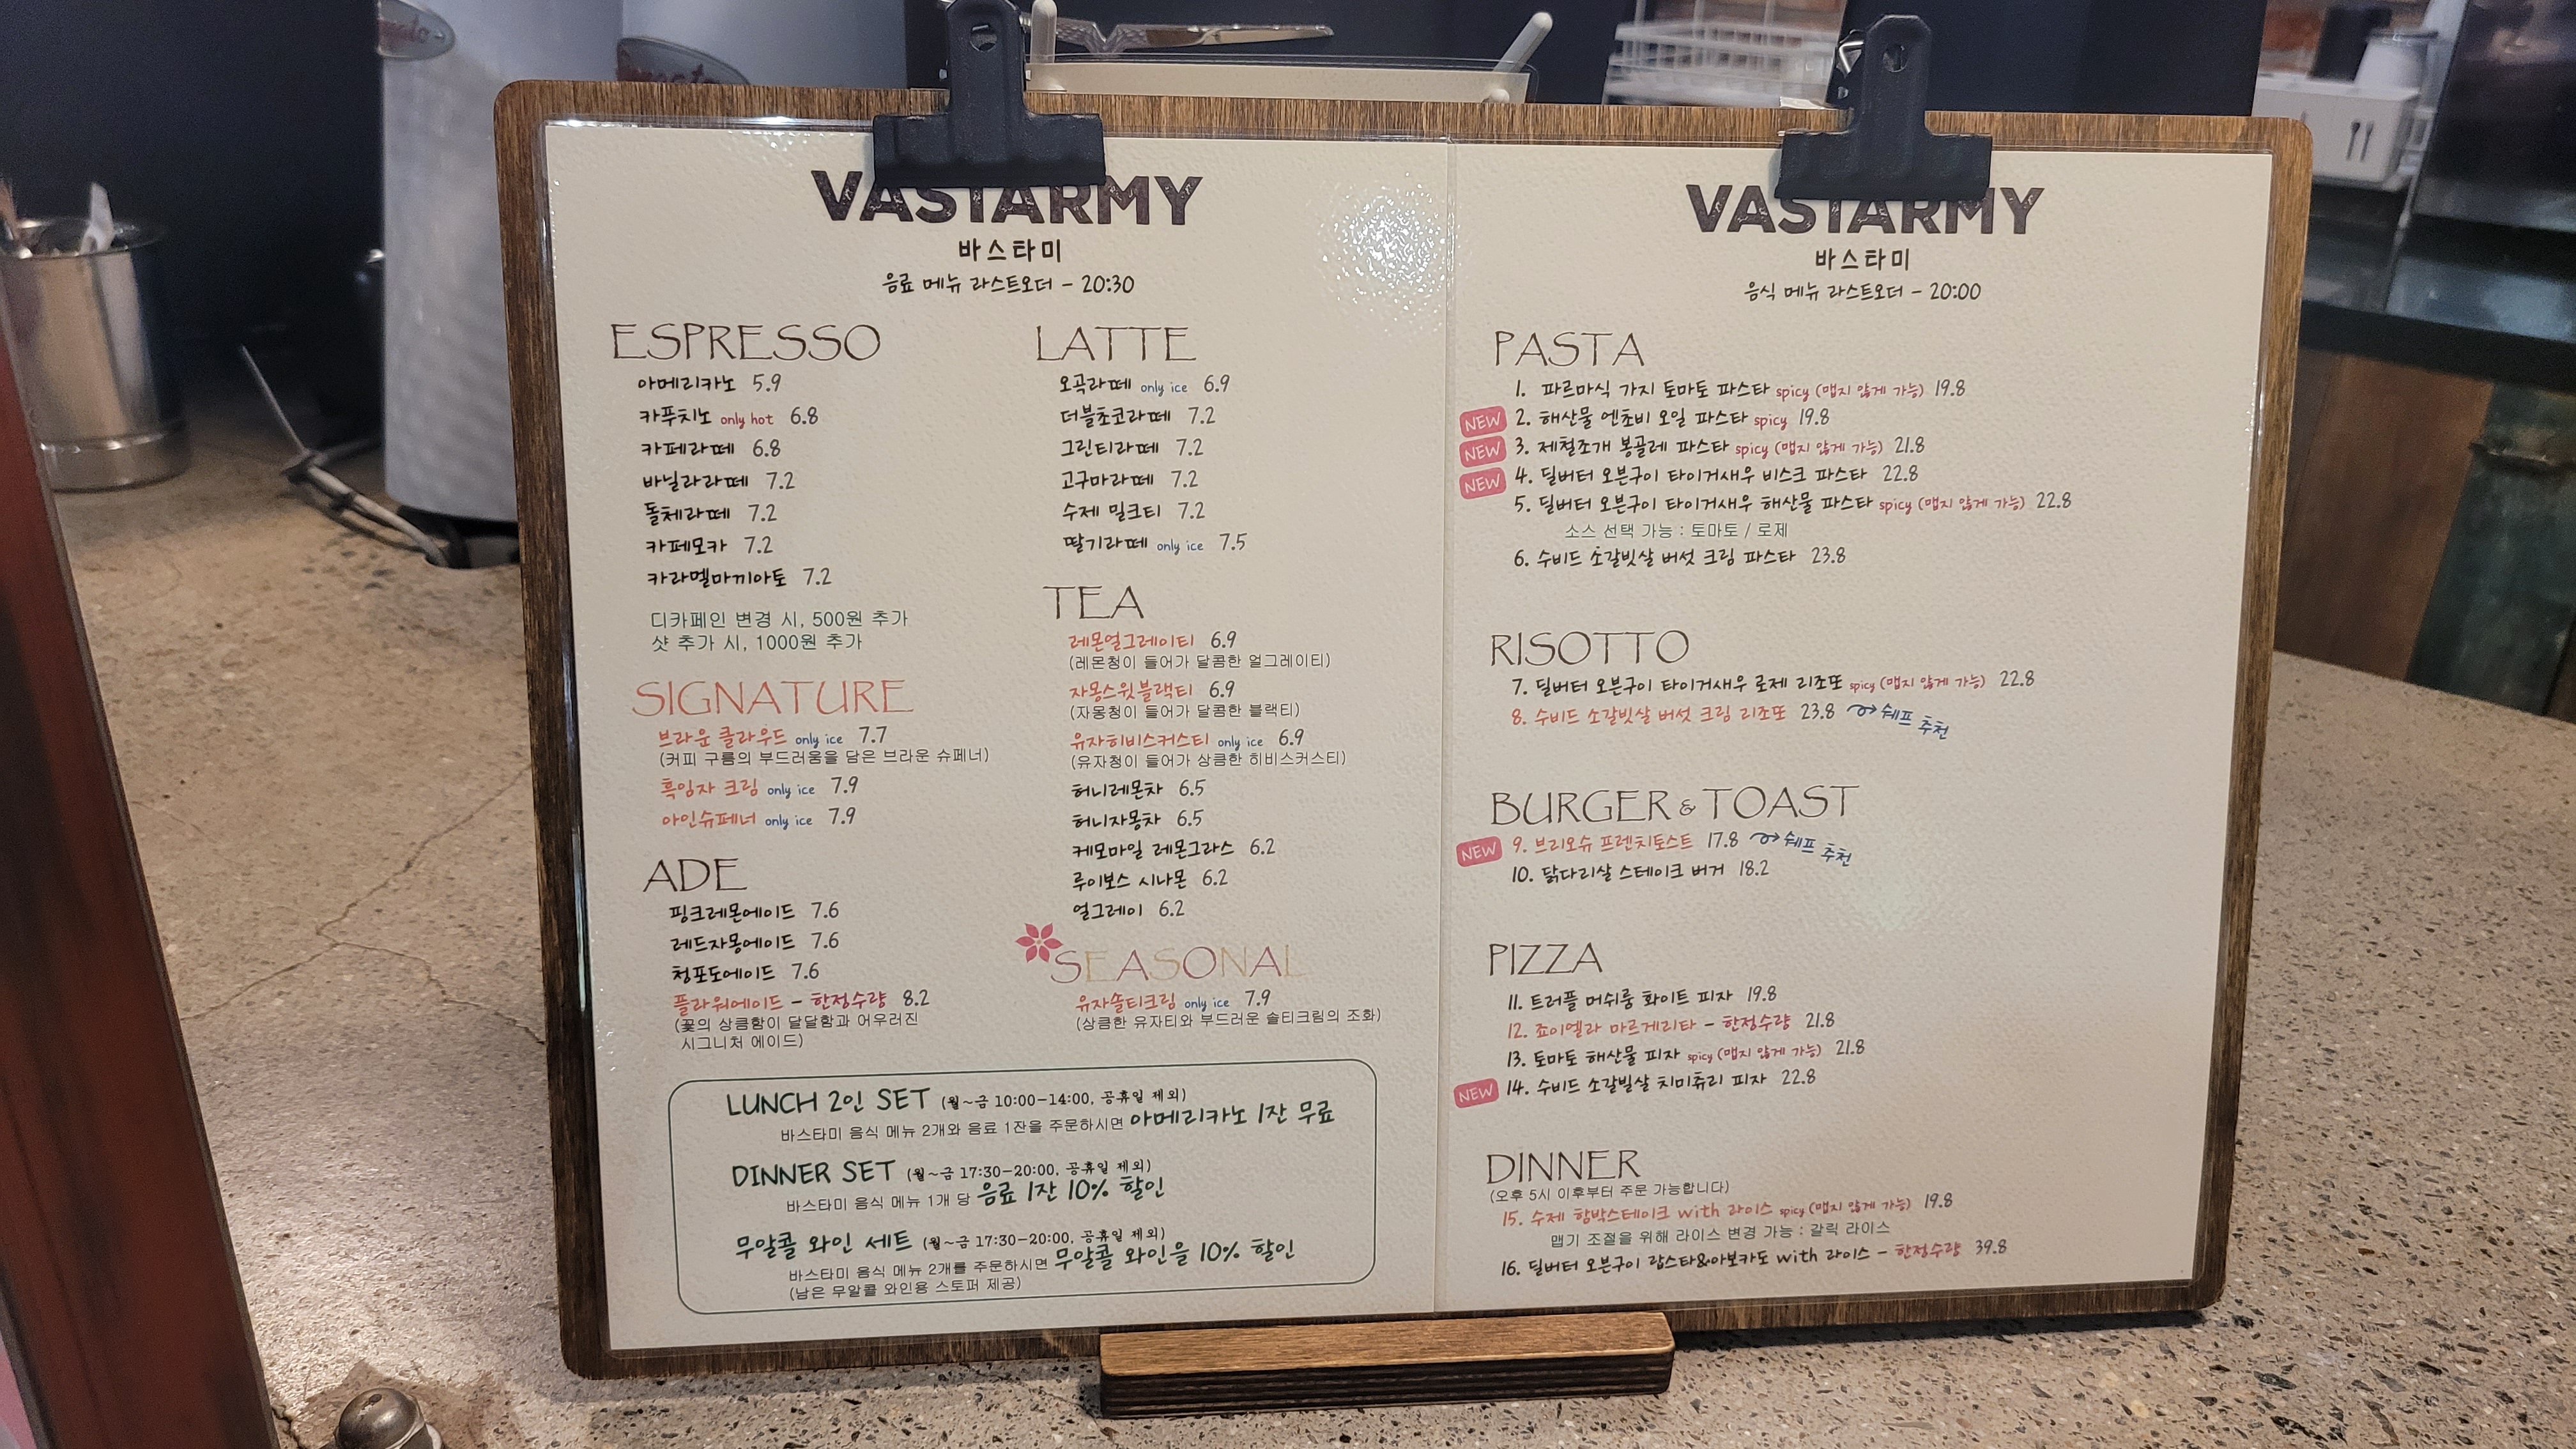 VASTARMY
바스타미
음료 메뉴 라스트오더 - 20:30
ESPRESSO
아메리카노 5.9
카푸치노 only hot 6.8
카페라떼 6.8
바닐라라떼 7.2
돌체라떼 7.2
카페모카 7.2
카라멜마끼아토 7.2
디카페인 변경 시, 500원 추가
샷 추가 시, 1000원 추가
SIGNATURE
브라운 클라우드 only ice 7.7
(커피 구름의 부드러움을 담은 브라운 슈페너)
흑임자 크림 only ice 7.9
아인슈페너 only ice 7.9
ADE
핑크레몬에이드 7.6
레드자몽에이드 7.6
청포도에이드 7.6
플라워에이드 - 한정수량 8.2
(꽃의 상큼함이 달달함과 어우러진
시그니처 에이드)
LATTE
오곡라떼 only ice 6.9
더블초코라떼 7.2
그린티라떼 7.2
고구마라떼 7.2
수제 밀크티 7.2
딸기라떼 only ice 7.5
TEA
레몬얼그레이티 6.9
(레몬청이 들어가 달콤한 얼그레이티)
자몽스윗블랙티 6.9
(자몽청이 들어가 달콤한 블랙티)
유자히비스커스티 only ice 6.9
(유자청이 들어가 상큼한 히비스커스티)
허니레몬차 6.5
허니자몽차 6.5
케모마일 레몬그라스 6.2
루이보스 시나몬 6.2
얼그레이 6.2
SEASONAL
유자솔티크림 only ice 7.9
(상큼한 유자티와 부드러운 솔티크림의 조화)
LUNCH 2인 SET (월~금 10:00-14:00, 공휴일 제외)
바스타미 음식 메뉴 2개와 음료 1잔을 주문하시면 아메리카노 1잔 무료
DINNER SET (월~금 17:30-20:00, 공휴일 제외)
바스타미 음식 메뉴 1개 당 음료 1잔 10% 할인
무알콜 와인 세트 (월~금 17:30-20:00, 공휴일 제외)
바스타미 음식 메뉴 2개를 주문하시면 무알콜 와인을 10% 할인
(남은 무알콜 와인용 스토퍼 제공)
VASTARMY
바스타미
음식 메뉴 라스트오더 - 20:00
PASTA
1. 파르마식 가지 토마토 파스타 spicy (맵지 않게 가능) 19.8
NEW 2. 해산물 엔초비 오일 파스타 spicy 19.8
NEW 3. 제철조개 봉골레 파스타 spicy (맵지 않게 가능) 21.8
NEW 4. 딜버터 오븐구이 타이거새우 비스크 파스타 22.8
5. 딜버터 오븐구이 타이거새우 해산물 파스타 spicy (맵지 않게 가능) 22.8
소스 선택 가능 : 토마토 / 로제
6. 수비드 소갈빗살 버섯 크림 파스타 23.8
RISOTTO
7. 딜버터 오븐구이 타이거새우 로제 리조또 spicy (맵지 않게 가능) 22.8
8. 수비드 소갈빗살 버섯 크림 리조또 23.8 쉐프 추천
BURGER & TOAST
NEW 9. 브리오슈 프렌치토스트 17.8 쉐프 추천
10. 닭다리살 스테이크 버거 18.2
PIZZA
11. 트러플 머쉬룸 화이트 피자 19.8
12. 죠이엘라 마르게리타 - 한정수량 21.8
13. 토마토 해산물 피자 spicy (맵지 않게 가능) 21.8
NEW 14. 수비드 소갈빌살 치미츄리 피자 22.8
DINNER
(오후 5시 이후부터 주문 가능합니다)
15. 수제 함박스테이크 with 라이스 spicy (맵지 않게 가능) 19.8
맵기 조절을 위해 라이스 변경 가능 : 갈릭 라이스
16. 딜버터 오븐구이 랍스타&아보카도 with 라이스 - 한정수량 39.8